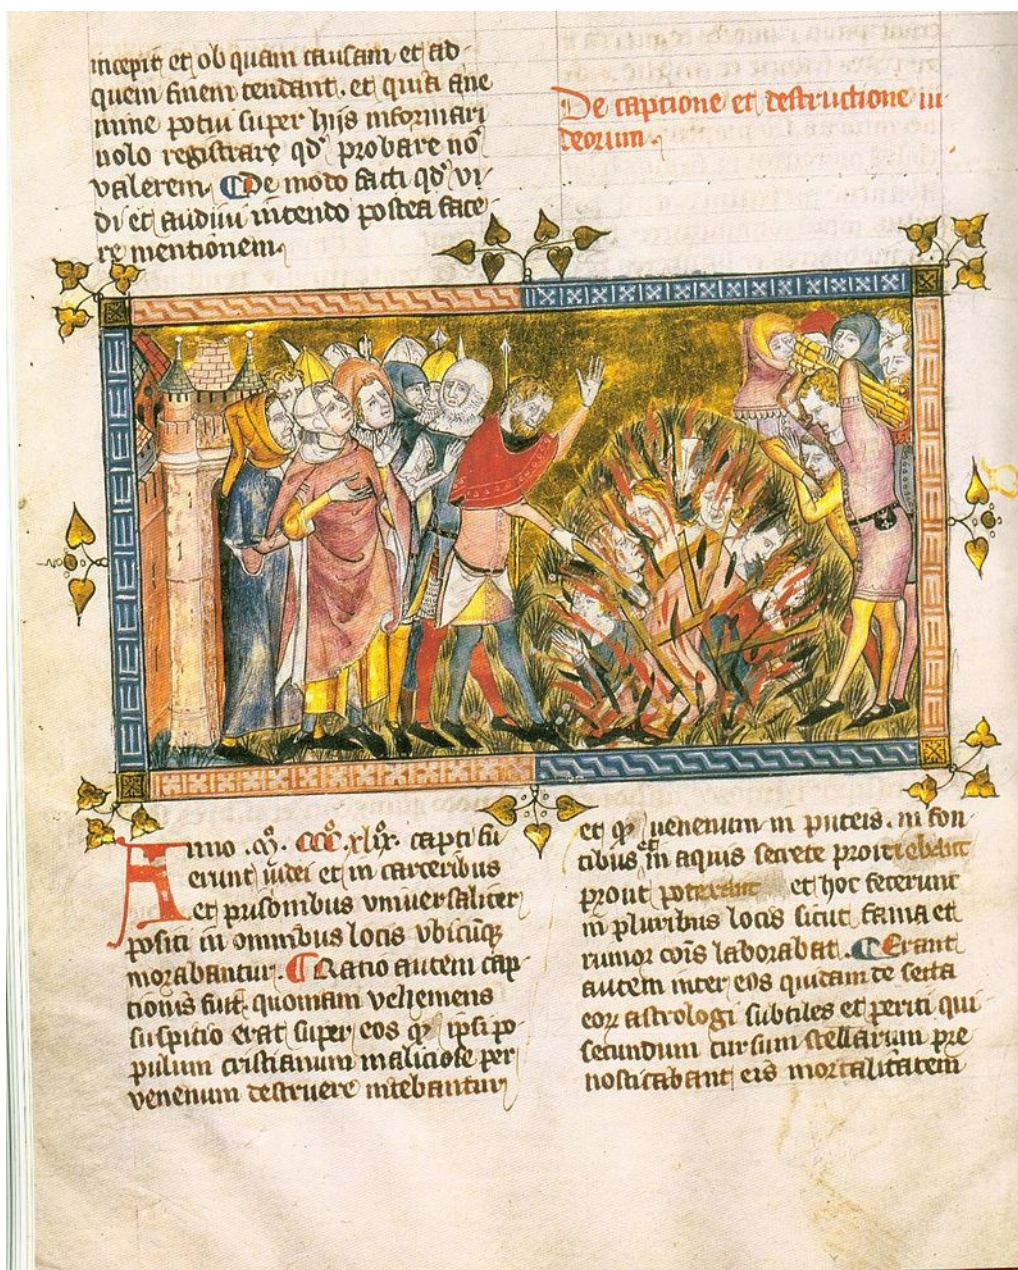 incepit et ob quam causam et ad
quem finem tendant. et quia a ne
mine potui super hijs informari
nolo registrare qd' probare nō
valerem. De modo facti qd' vi
di et audiui intendo postea face
re mentionem.
De captione et destructione iu
deorum.
Anno .Mº. CCCº. xlix. capti fu
erunt iudei et in carceribus
et prisonibus vniuersaliter
positi in omnibus locis vbicūqȝ
morabantur. Ratio autem cap
tionis fuit. quoniam vehemens
suspitio erat super eos qꝫ ipsi po
pulum cristianum maliciose per
venenum destruere nitebantur
et qꝫ uenenum in puteis. in fon
tibus et in aquis secrete proiciebant
prout poterant et hoc fecerunt
in pluribus locis sicut fama et
rumor cōīs laborabat. Erant
autem inter eos quidam de secta
eoꝝ astrologi subtiles et periti qui
secundum cursum stellarum pre
nosticabant eis mortalitatem